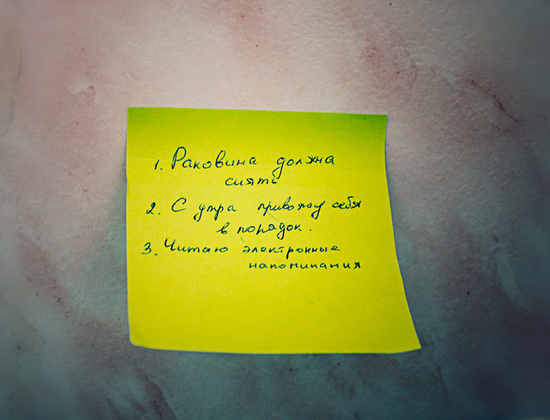 1. Раковина должна
сиять
2. С утра привожу себя
в порядок.
3. Читаю электронные
напоминания